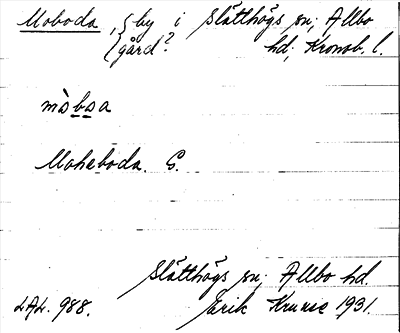 Moboda, { by i Slätthögs sn; Allbo
{ gård? hd; Kronob. l.
mò̀bsa
Moheboda. G.
Slätthögs sn; Allbo hd.
LAL. 988. Erik Kruuse 1931.